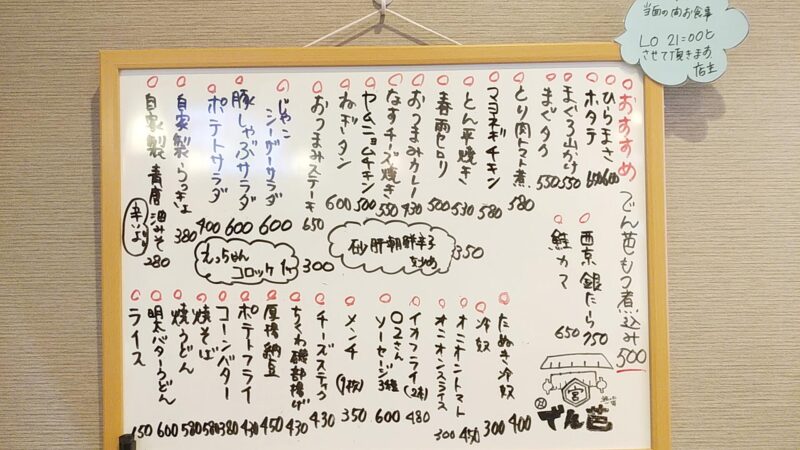 当面の間お食事
LO 21:00と
させて頂きます
店主
おすすめ でん芭もつ煮込み 500
ひらまさ 600
ホタテ 650
まぐろ山かけ 550
まぐタク 550
とり肉トマト煮 580
マヨネギチキン 580
とん平焼き 530
春雨ピロリ 500
おつまみカレー 430
なすチーズ焼き 550
ヤムニョムチキン 500
ねぎタン 600
おつまみステーキ 650
じゃこシーザーサラダ 600
豚しゃぶサラダ 600
ポテトサラダ 400
自家製らっきょ 380
自家製青唐油みそ 280
辛いよ。
西京銀だら 750
鮭カマ 650
砂肝朝鮮辛子炒め 350
えっちゃんコロッケ 1ヶ 300
たぬき冷奴 400
冷奴 300
オニオントマト 450
オニオンスライス 300
イカフライ(2本) 480
ソーセージ3種 600
メンチ(1枚) 350
チーズスティック 430
ちくわ磯部揚げ 430
厚揚納豆 450
ポテトフライ 430
コーンバター 380
焼そば 580
焼うどん 580
明太バターうどん 600
ライス 150
宮
でん芭